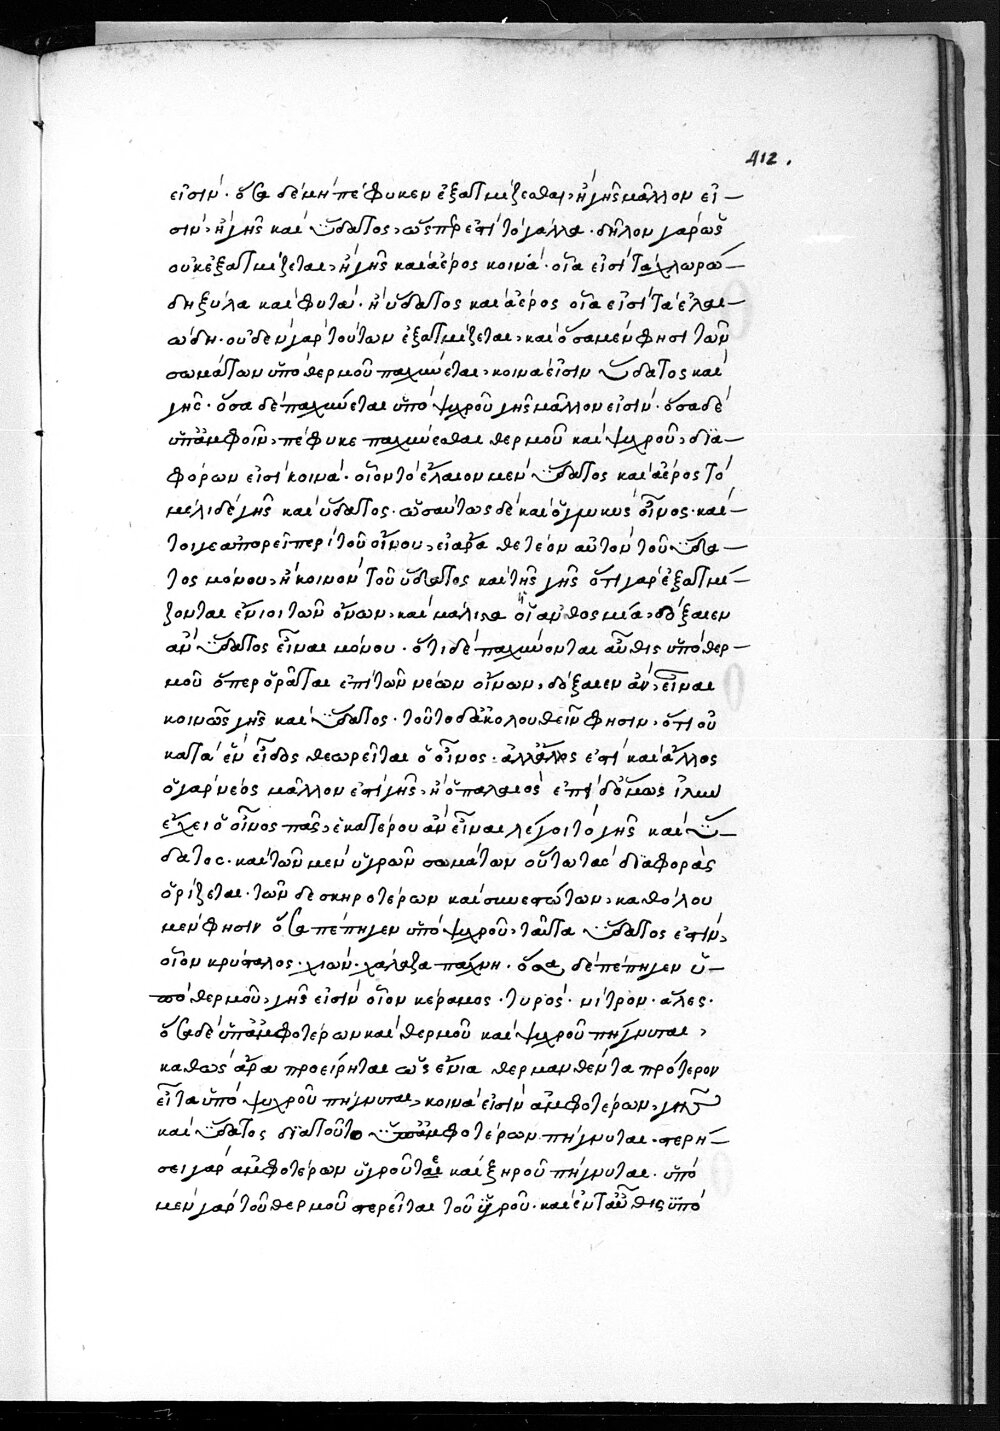 412.
εἰσίν· ὅσα δὲ μὴ πέφυκεν ἐξατμίζεσθαι, ἢ γῆς μᾶλλον εἰ-
σὶν, ἢ γῆς καὶ ὕδατος, ὥσπερ ἐπὶ τὸ γάλα· δῆλον γὰρ ὡς
οὐκ ἐξατμίζεται, ἢ γῆς καὶ ἀέρος κοινά· οἷα εἰσὶ τὰ χλωρώ-
δη ξύλα καὶ φυτά· ἢ ὕδατος καὶ ἀέρος οἷα εἰσὶ τὰ ἐλαι-
ώδη· οὐδὲν γὰρ τούτων ἐξατμίζεται, καὶ ὅσα μέν φησι τῶν
σωμάτων ὑπὸ θερμοῦ παχύνεται, κοινὰ εἰσὶν ὕδατος καὶ
γῆς· ὅσα δὲ παχύνεται ὑπὸ ψυχροῦ γῆς μᾶλλον εἰσίν· ὅσα δὲ
ὑπ' ἀμφοῖν, πέφυκε παχύνεσθαι θερμοῦ καὶ ψυχροῦ, δια-
φόρων εἰσὶ κοινά· οἷον τὸ ἔλαιον μὲν ὕδατος καὶ ἀέρος τὸ
μέλι δὲ γῆς καὶ ὕδατος· ὡσαύτως δὲ καὶ ὁ γλυκὺς οἶνος· καί-
τοι γε ἀπορεῖ περὶ τοῦ οἴνου, εἰ ἄρα θετέον αὐτὸν τοῦ ὕδα-
τος μόνου, ἢ κοινὸν τοῦ ὕδατος καὶ τῆς γῆς ὅτι γὰρ ἐξατμί-
ζονται ἔνιοι τῶν οἴνων, καὶ μάλιστα οἱ ἀνθοσμίαι, δόξαιεν
ἂν ὕδατος εἶναι μόνου· ὅτι δὲ παχύνονται αὖθις ὑπὸ θερ-
μοῦ ὅπερ ὁρᾶται ἐπὶ τῶν νέων οἴνων, δόξαιεν ἂν, εἶναι
κοινῶς γῆς καὶ ὕδατος· τοῦτο δ' ἀκολουθεῖν φησιν, ὅτι οὐ
κατὰ ἓν εἶδος θεωρεῖται ὁ οἶνος· ἀλλ' ἄλλος ἐστὶ καὶ ἄλλος
ὁ γὰρ νέος μᾶλλον ἐστὶ γῆς, ἢ ὁ παλαιός ἐπεὶ δ' ὅμως ἰλὺν
ἔχει ὁ οἶνος πᾶς, ἑκατέρου ἂν εἶναι λέγοιτο γῆς καὶ ὕ-
δατος· καὶ τῶν μὲν ὑγρῶν σωμάτων οὕτω τὰς διαφορὰς
ὁρίζεται· τῶν δὲ σκηροτέρων καὶ συνεστώτων, καθόλου
μέν φησιν ὅσα πέπηγεν ὑπὸ ψυχροῦ, ταῦτα ὕδατος ἐστίν,
οἷον κρύσταλος· χιών· χάλαζα πάχνη· ὅσα δὲ πέπηγεν ὑ-
πὸ θερμοῦ, γῆς εἰσίν οἷον κέραμος· τυρός· νίτρον· ἅλες·
ὅσα δὲ ὑπ' ἀμφοτέρων καὶ θερμοῦ καὶ ψυχροῦ πήγνυται,
καθὼς ἄρα προείρηται ὡς ἔνια θερμανθέντα πρότερον
εἶτα ὑπὸ ψυχροῦ πήγνυται, κοινὰ εἰσὶν ἀμφοτέρων, γῆς
καὶ ὕδατος διατοῦτο ὑπ' ἀμφοτέρων πήγνυται· στερή-
σει γὰρ ἀμφοτέρων ὑγροῦ τὲ καὶ ξηροῦ πήγνυται· ὑπὸ
μὲν γὰρ τοῦ θερμοῦ στερεῖται τοῦ ὑγροῦ· καὶ ἐνταῦθις ὑπὸ